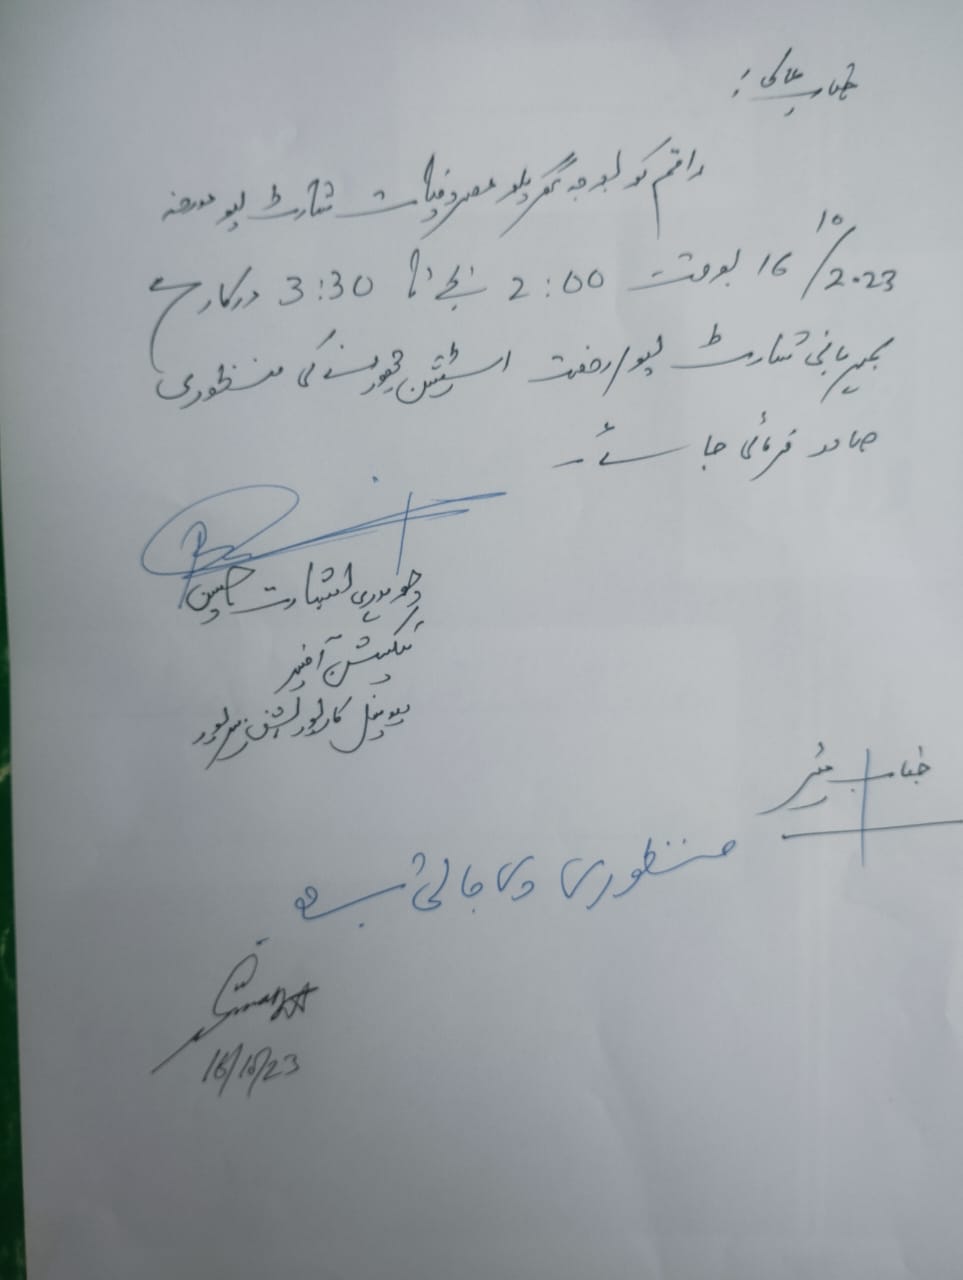 جناب عالی!
راقم کو بوجہ گھریلو مصروفیات شارٹ لیو مورخہ
16/10/2023 بوقت 2:00 بجے تا 3:30 درکار ہے
بمہربانی شارٹ لیو/رخصت اسٹیشن چھوڑنے کی منظوری
صادر فرمائی جائے۔
چوہدری بشارت حسین
ٹیکسیشن آفیسر
میونسپل کارپوریشن میرپور
جناب میئر
منظوری دی جاتی ہے
16/10/23